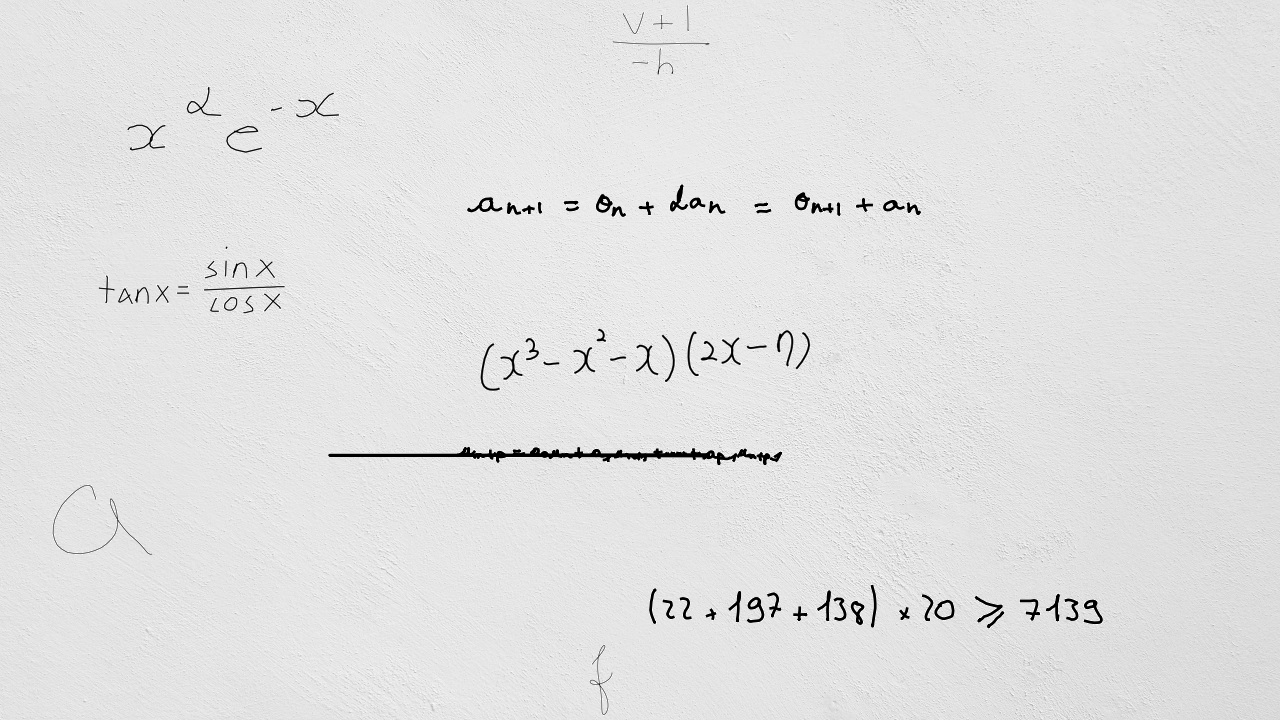 v+1
/
-h
x^α e^{-x}
a_{n+1} = o_n + da_n = o_{n+1} + a_n
tanx = sinx/cosx
(x^3 - x^2 - x)(2x - η)
a
(22 + 197 + 138) × 20 ≥ 7139
f